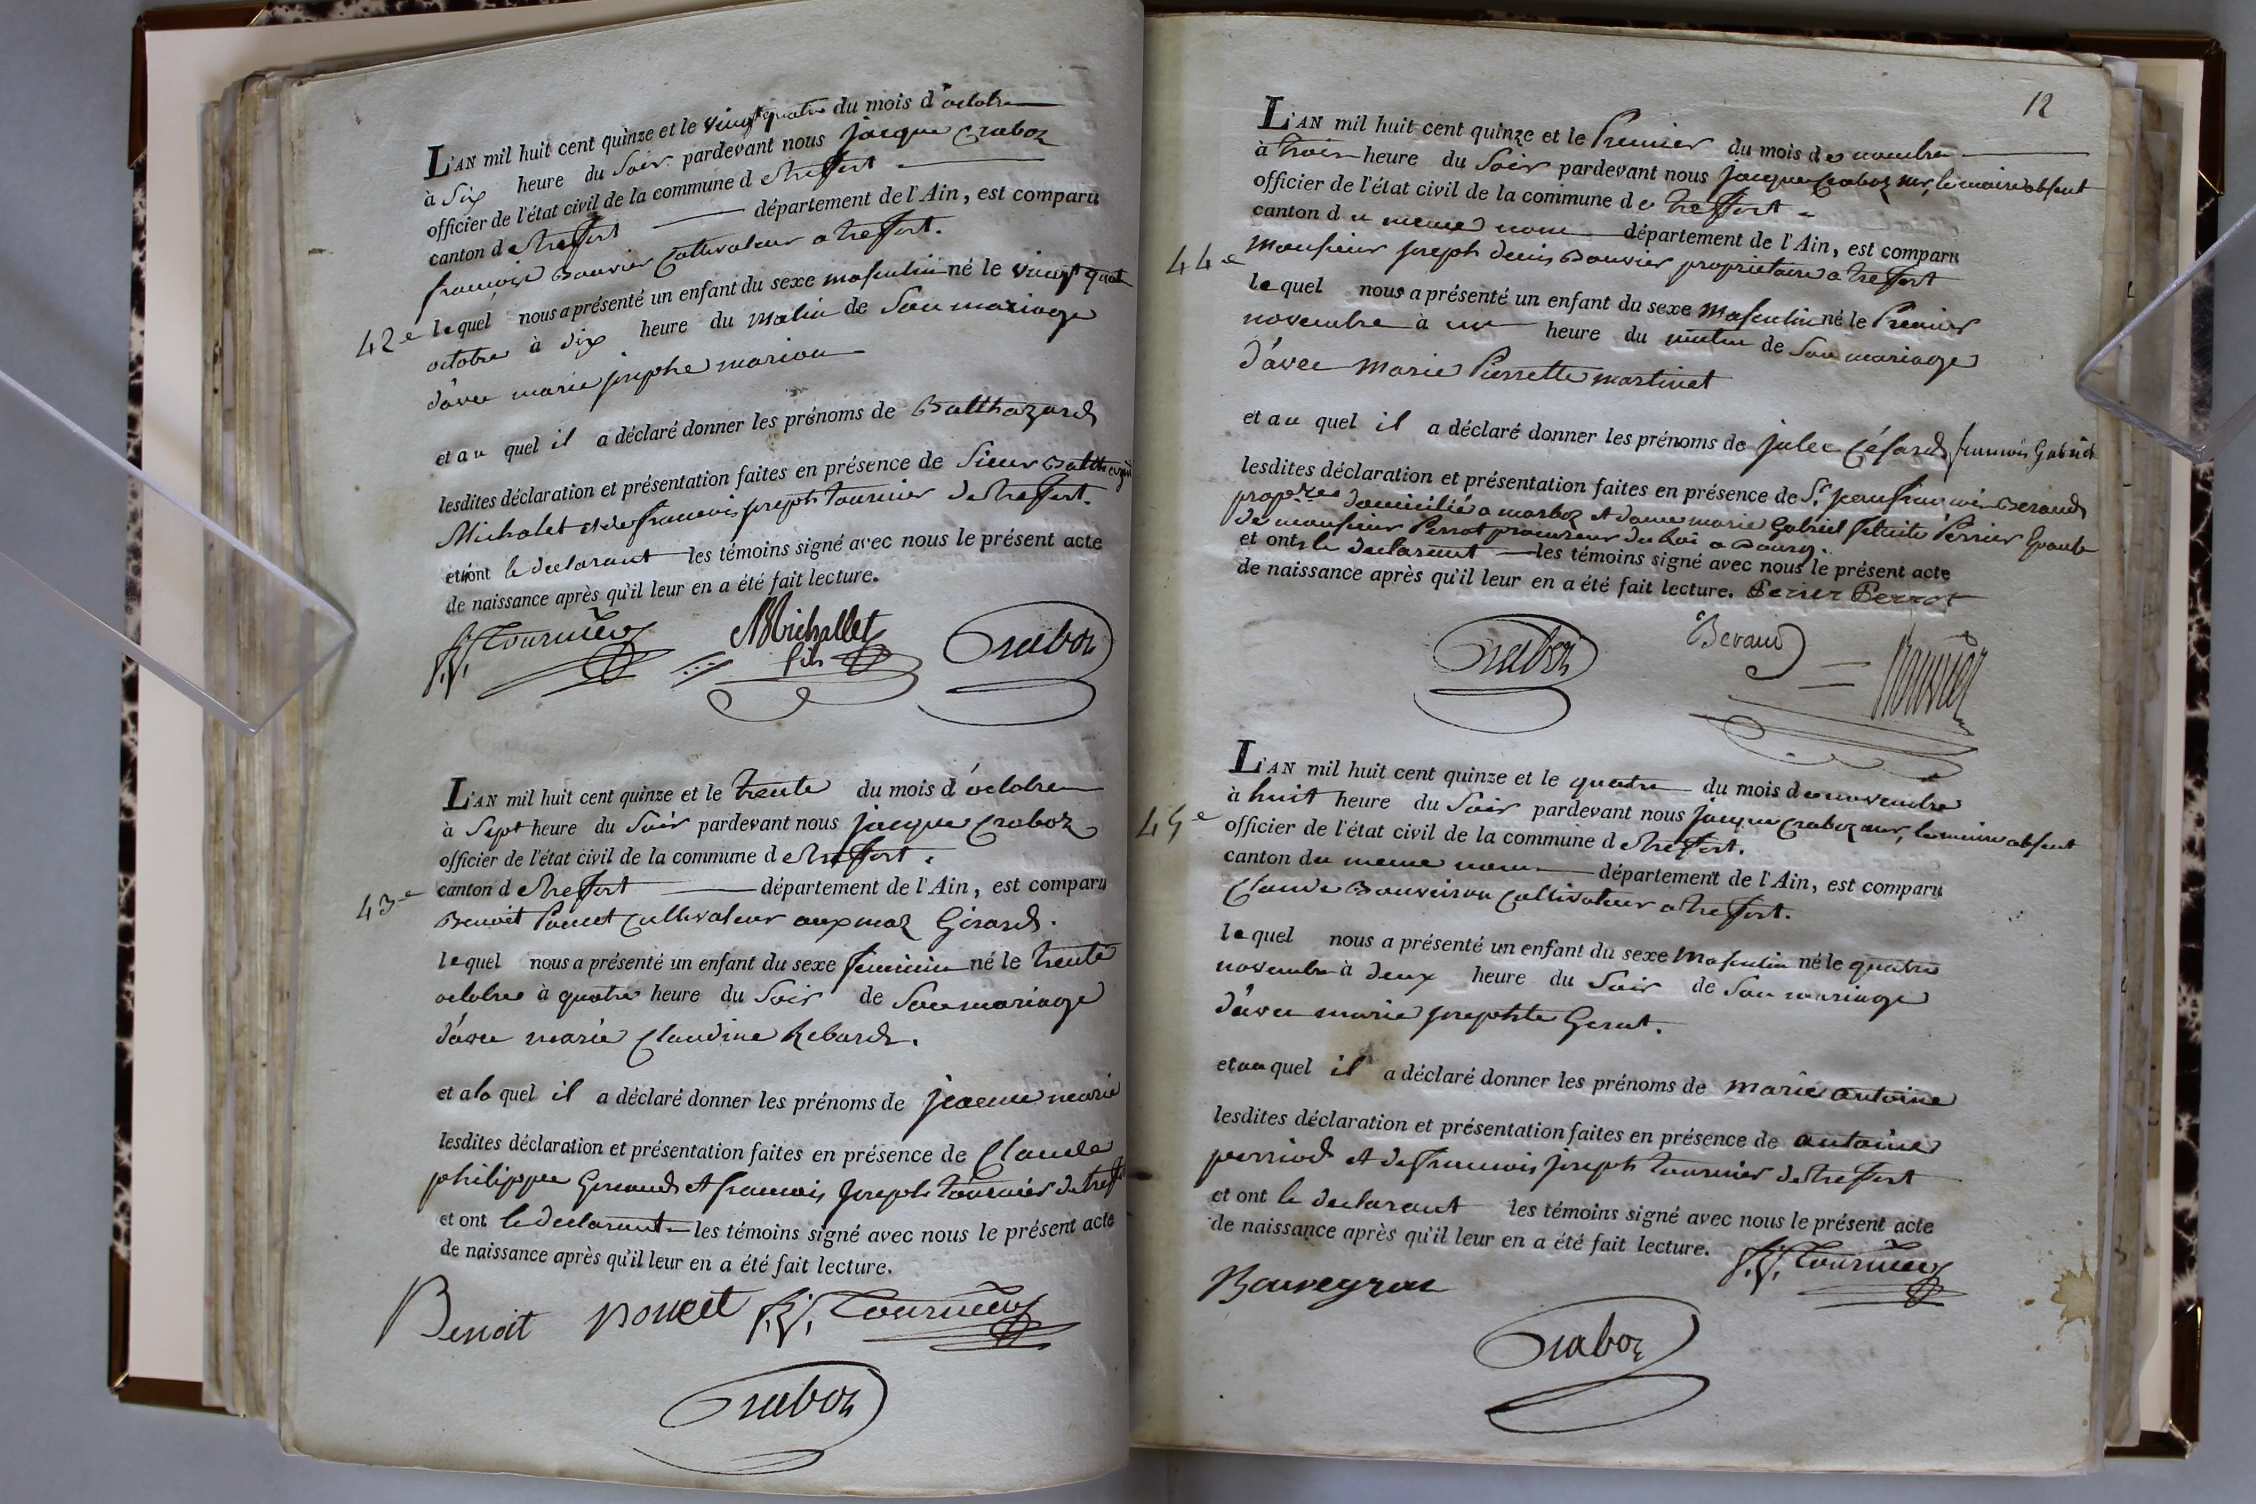 L'AN mil huit cent quinze et le vingt quatre du mois d'octobre
à Six heure du Soir pardevant nous jacque Craboz
officier de l'état civil de la commune de treffort
canton de treffort département de l'Ain, est comparu
françois Bouvier Cultivateur a treffort.
42e lequel nous a présenté un enfant du sexe masculin né le vingt quat
octobre à dix heure du matin de Son mariage
d'avec marie josephe marion
et au quel il a déclaré donner les prénoms de Balthazard
lesdites déclaration et présentation faites en présence de Sieur Balthazard
Michalet et de françois joseph tournier de treffort.
et ont le declarant les témoins signé avec nous le présent acte
de naissance après qu'il leur en a été fait lecture.
f.j. Tournier Michallet fils Craboz
L'AN mil huit cent quinze et le trente du mois d'octobre
à Sept heure du Soir pardevant nous jacque Craboz
officier de l'état civil de la commune de treffort.
canton de treffort département de l'Ain, est comparu
43e Benoit Poncet Cultivateur aux maz Girard.
lequel nous a présenté un enfant du sexe feminin né le trente
octobre à quatre heure du Soir de Son mariage
d'avec marie Claudine Rebard.
et a la quel il a déclaré donner les prénoms de jeanne marie
lesdites déclaration et présentation faites en présence de Claude
philippe et françois joseph tournier de treff
et ont le declarant les témoins signé avec nous le présent acte
de naissance après qu'il leur en a été fait lecture.
Benoit poncet f.j. Tournier
Craboz
12
L'AN mil huit cent quinze et le Premier du mois de novembre
à trois heure du Soir pardevant nous jacque Craboz le maire absent
officier de l'état civil de la commune de treffort
canton du meme nom département de l'Ain, est comparu
44e Monsieur joseph denis Bouvier proprietaire a treffort
lequel nous a présenté un enfant du sexe Masculin né le Premier
novembre à une heure du matin de Son mariage
d'avec Marie Pierrette martinet
et au quel il a déclaré donner les prénoms de jules César françois Gabriel
lesdites déclaration et présentation faites en présence de Sr. jean françois Beraud
propres domicilié a marboz et dame marie Gabriel felicité Perrier Epouse
de monsieur Perrot procureur du Roi a Bourg.
et ont le declarant les témoins signé avec nous le présent acte
de naissance après qu'il leur en a été fait lecture. Perier Perrot
Craboz Beraud Bouvier
L'AN mil huit cent quinze et le quatre du mois de novembre
à huit heure du Soir pardevant nous jacque Craboz le maire absent
45e officier de l'état civil de la commune de treffort.
canton du meme nom département de l'Ain, est comparu
Claude Bouveiron Cultivateur a treffort.
lequel nous a présenté un enfant du sexe Masculin né le quatre
novembre à deux heure du Soir de Son mariage
d'avec marie josephte
et au quel il a déclaré donner les prénoms de marie antoine
lesdites déclaration et présentation faites en présence de antoine
perriod et de françois joseph tournier de treffort
et ont le declarant les témoins signé avec nous le présent acte
de naissance après qu'il leur en a été fait lecture. f.j. Tournier
Bouveyron
Craboz